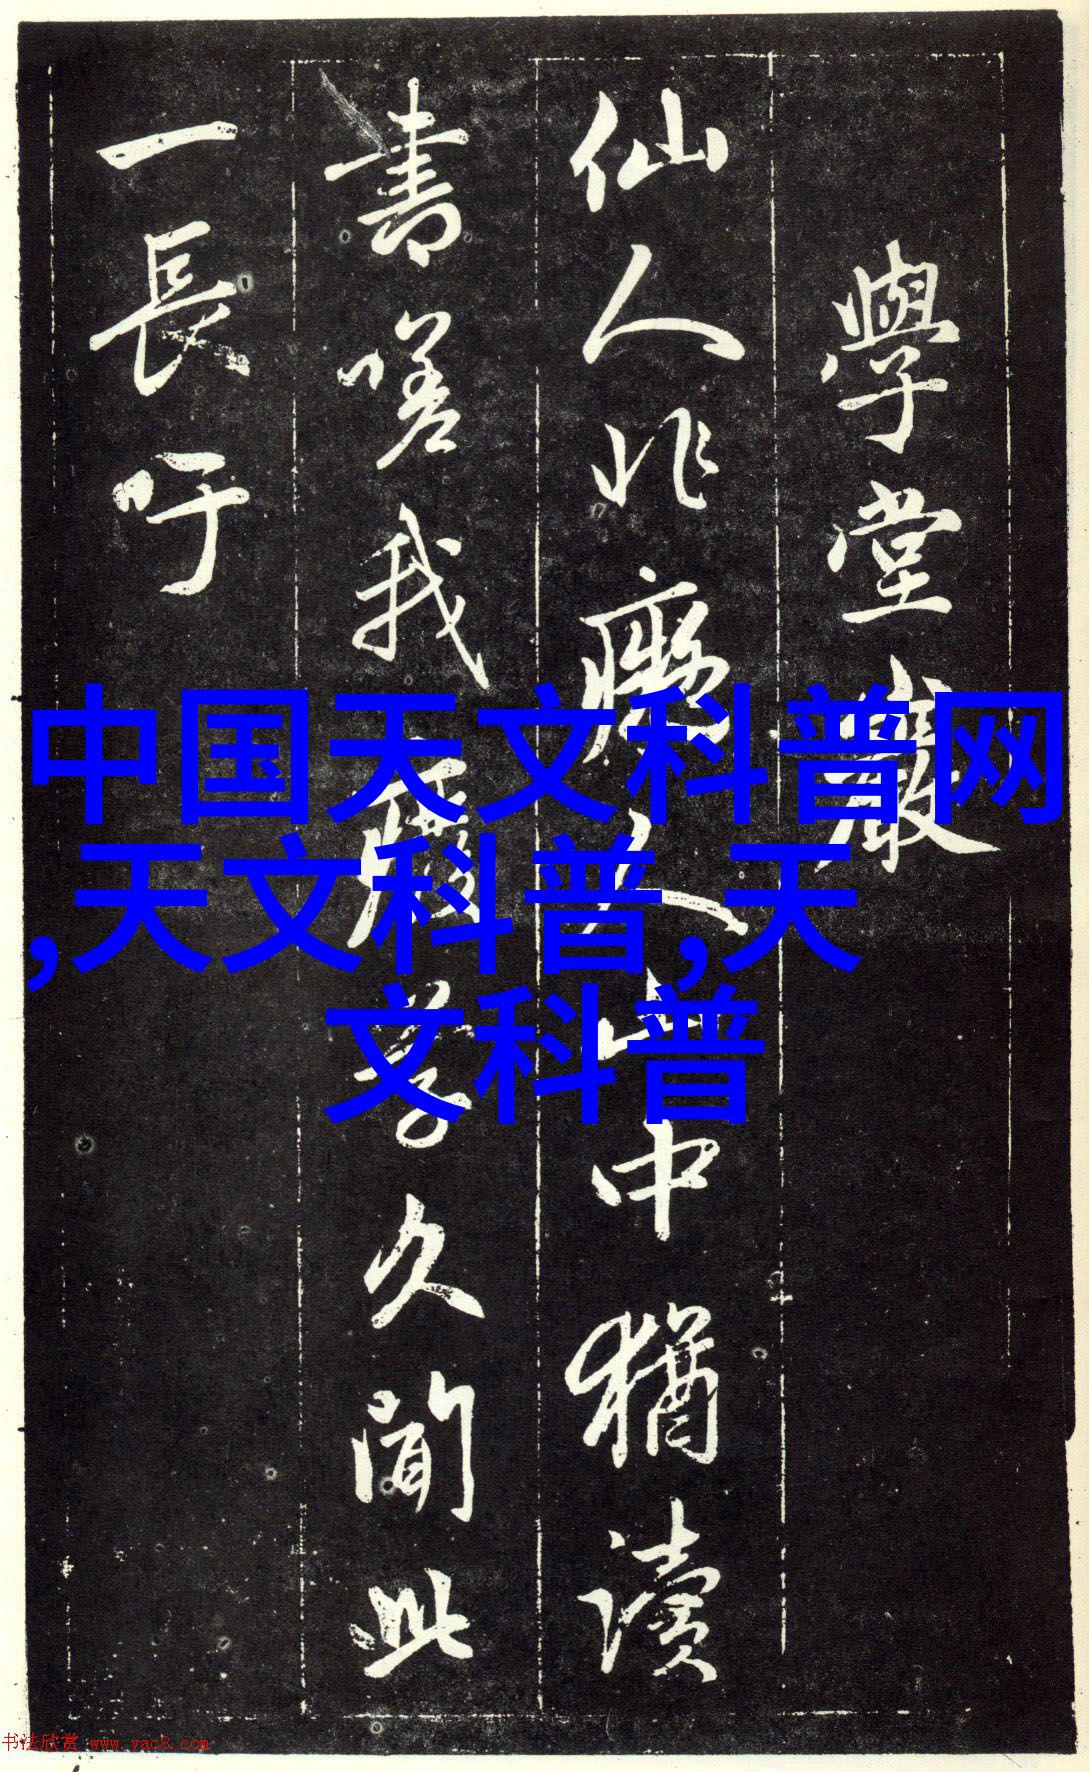 學堂巖
仙人非癡人山中猶讀
書嗟我廢學久聞此
一長吁
中国天文科普网
,天文科普,天
文科普
书法欣赏 www.yac8.com